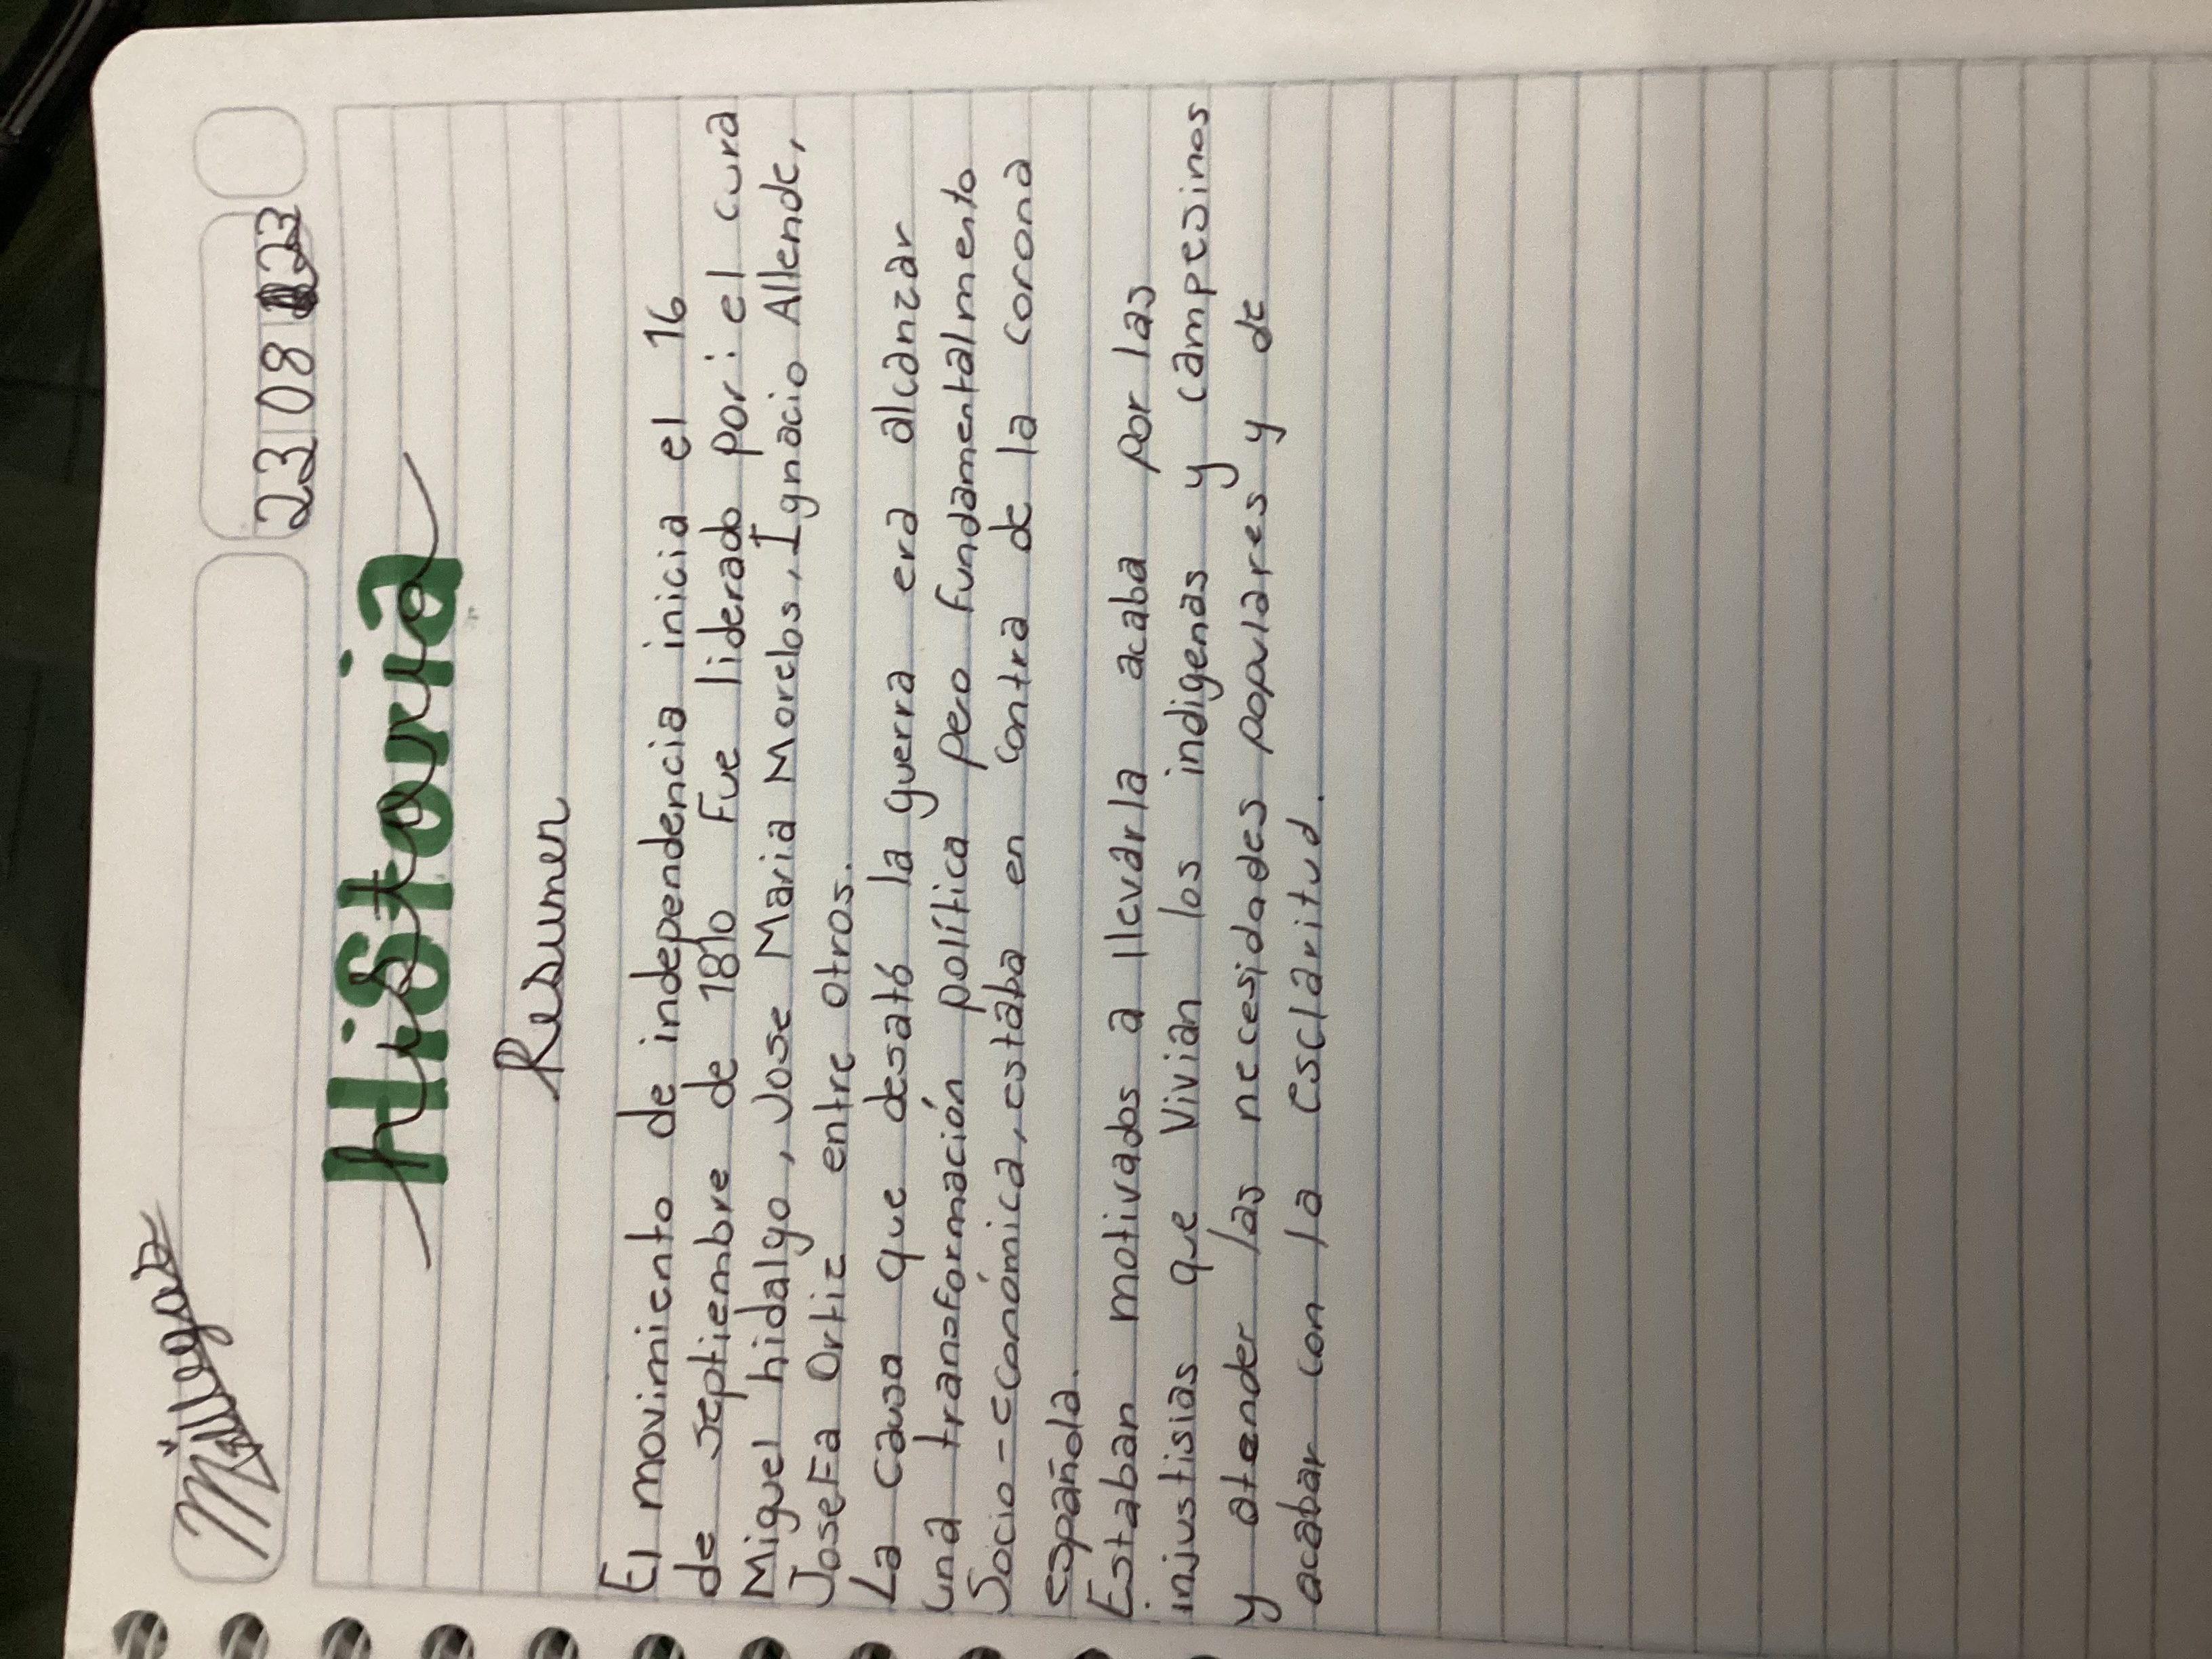 23 08 23
Historia
Resumen
El movimiento de independencia inicia el 16
de septiembre de 1810 Fue liderado por: el cura
Miguel hidalgo, Jose Maria Morelos, Ignacio Allende,
Josefa Ortiz entre otros.
La causa que desató la guerra era alcanzar
una transformación política pero fundamentalmento
Socio-económica, estaba en contra de la corona
española.
Estaban motivados a llevarla acaba por las
injustisias que Vivian los indigenas y campesinos
y atender las necesidades populares y de
acabar con la esclaritud.